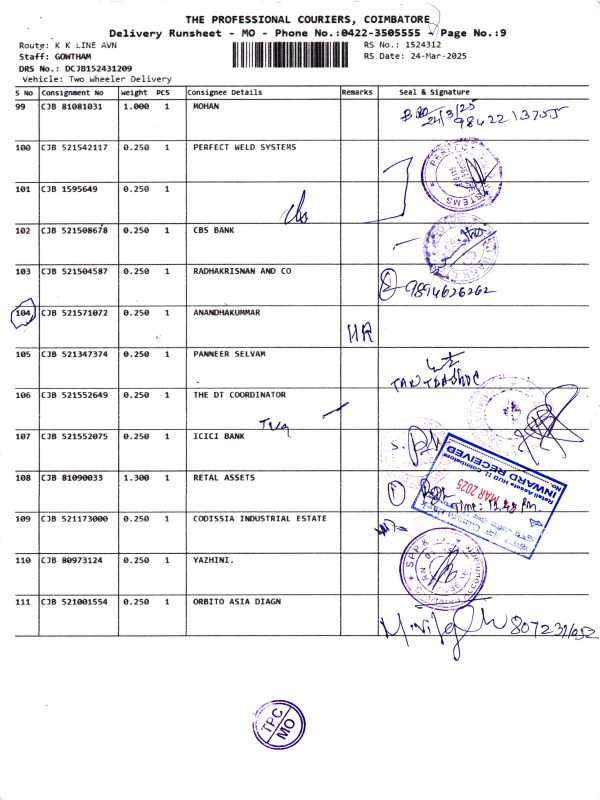 THE PROFESSIONAL COURIERS, COIMBATORE
Delivery Runsheet - MO - Phone No.:0422-3505555 - Page No.:9
Route: K K LINE AVN RS No.: 1524312
Staff: GOWTHAM RS Date: 24-Mar-2025
DRS No.: DCJB152431209
Vehicle: Two Wheeler Delivery
S No Consignment No Weight PCS Consignee Details Remarks Seal & Signature
99 CJB 81081031 1.000 1 MOHAN
24/3/25
9842213755
100 CJB 521542117 0.250 1 PERFECT WELD SYSTEMS
101 CJB 1595649 0.250 1
102 CJB 521508678 0.250 1 CBS BANK
103 CJB 521504587 0.250 1 RADHAKRISNAN AND CO
9894626262
104 CJB 521571072 0.250 1 ANANDHAKUMMAR
HR
105 CJB 521347374 0.250 1 PANNEER SELVAM
106 CJB 521552649 0.250 1 THE DT COORDINATOR
107 CJB 521552075 0.250 1 ICICI BANK
Retail Assets HUB II Coimbatore
INWARD RECEIVED
No.
MAR 2025
108 CJB 81090033 1.300 1 RETAL ASSETS
109 CJB 521173000 0.250 1 CODISSIA INDUSTRIAL ESTATE
110 CJB 80973124 0.250 1 YAZHINI.
111 CJB 521001554 0.250 1 ORBITO ASIA DIAGN
TPC
MO